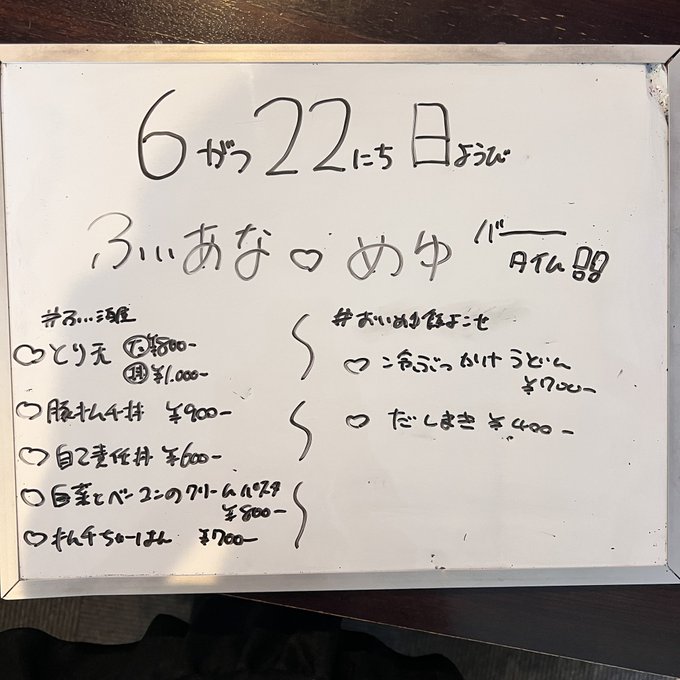 6がつ22にち日ようび
ふぃぃあな♡めゆ バータイム!!
#ふぃ酒屋
♡とり天 (た)¥800-
(丼)¥1.000-
♡豚キムチ丼 ¥900-
♡自己責任丼 ¥600-
♡白菜とベーコンのクリームパスタ
¥800-
♡キムチちゃーはん ¥700-
#おいめゆ飯よこせ
♡冷ぶっかけうどぅん
¥700-
♡だしまき ¥400-